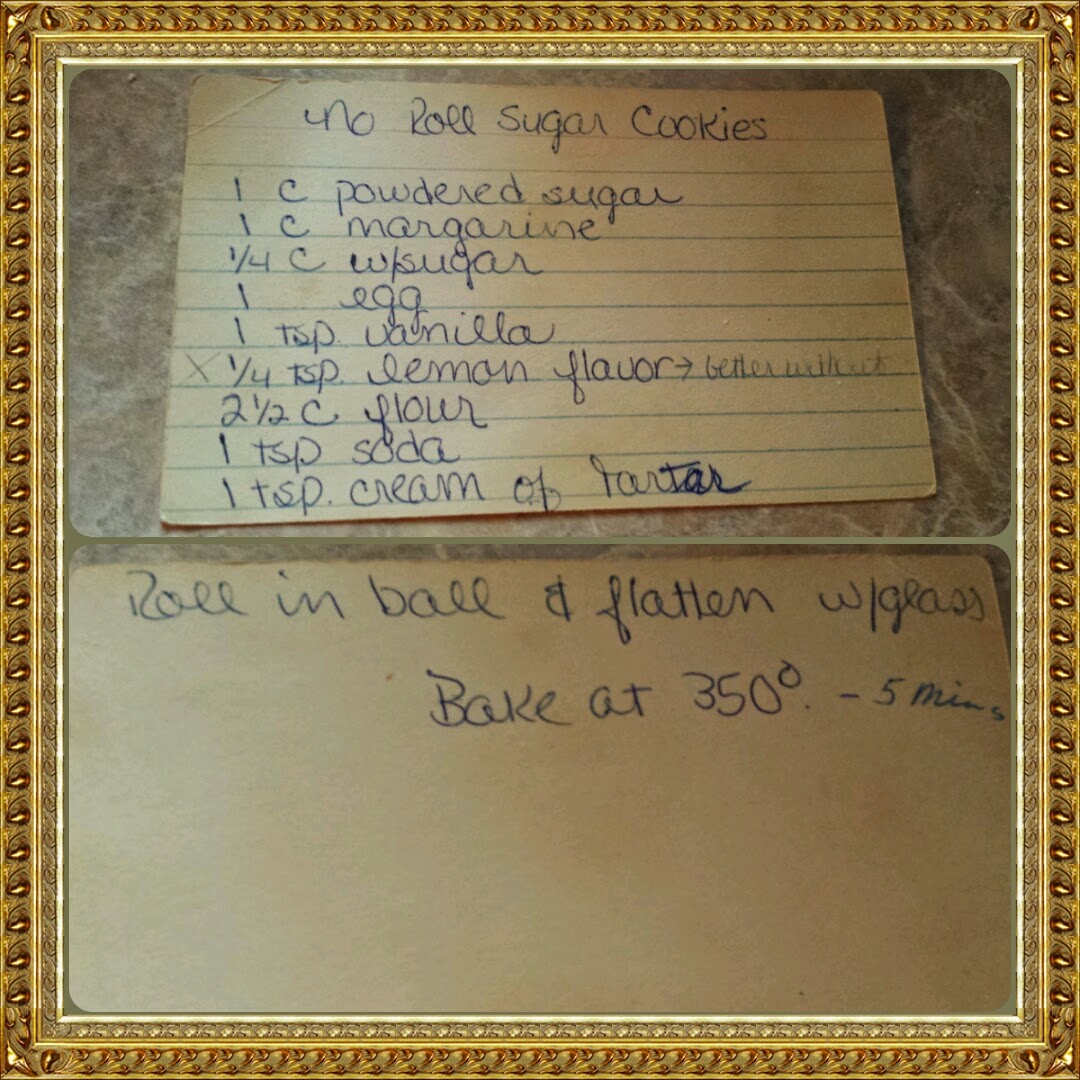 No Roll Sugar Cookies
1 C powdered sugar
1 C margarine
1/4 C w/sugar
1 egg
1 tsp. vanilla
X 1/4 tsp. lemon flavor → better without
2 1/2 C flour
1 tsp soda
1 tsp. cream of tartar
Roll in ball & flatten w/glass
Bake at 350°. - 5 mins